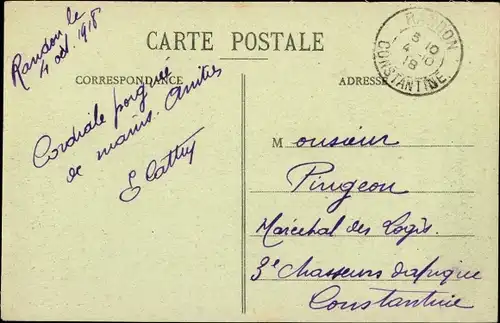 Randon le
4 oct. 1918
CARTE POSTALE
CORRESPONDANCE
ADRESSE
RANDON
8 10
4 -10
18
CONSTANTINE.
Cordiale poignée
de mains. Amitiés
Monsieur
Pingeon
Maréchal des Logis
3e Chasseurs d'afrique
Constantine